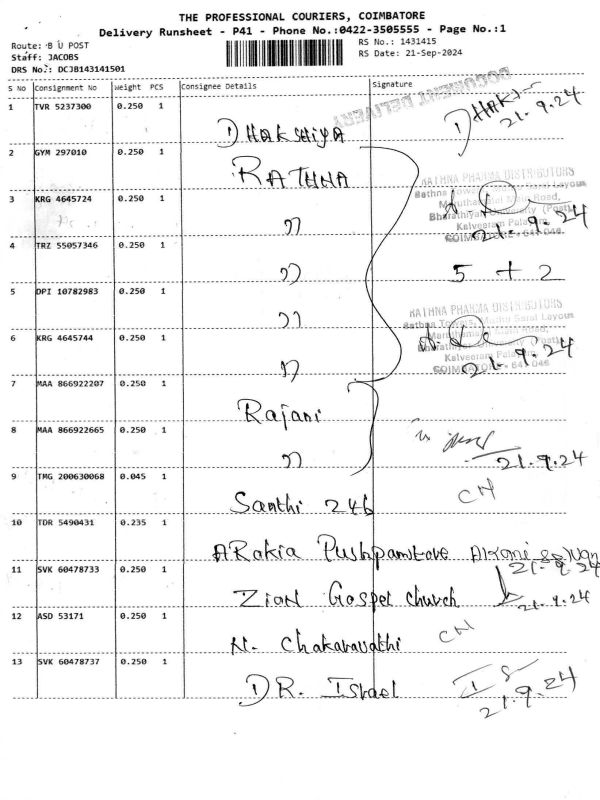 THE PROFESSIONAL COURIERS, COIMBATORE
Delivery Runsheet - P41 - Phone No.:0422-3505555 - Page No.:1
Route: B U POST
Staff: JACOBS
DRS No.: DCJB143141501
RS No.: 1431415
RS Date: 21-Sep-2024
S No Consignment No Weight PCS Consignee Details Signature
DOCUMENT DELIVERY
1 TVR 5237300 0.250 1 DHAKSHIYA DHAKS 21.9.24
2 GYM 297010 0.250 1 RATHNA
RATHNA PHARMA DISTRIBUTORS
3 KRG 4645724 0.250 1 " 21.9.24
Bharathiyar University (Post)
Kalveeram Palayam,
COIMBATORE - 641 046
4 TRZ 55057346 0.250 1 " 5 + 2
5 DPI 10782983 0.250 1 "
RATHNA PHARMA DISTRIBUTORS
6 KRG 4645744 0.250 1 " 21.9.24
Kalveeram Palayam,
COIMBATORE - 641 046
7 MAA 866922207 0.250 1 Rajani
8 MAA 866922665 0.250 1 " 21.9.24
9 TMG 200630068 0.045 1 Santhi 246 CN
10 TDR 5490431 0.235 1 ARokia Pushpamstore 21.9.24
11 SVK 60478733 0.250 1 Zion Gospel church 21.9.24
12 ASD 53171 0.250 1 N. Chakaravathi CN
13 SVK 60478737 0.250 1 DR. Israel 21.9.24